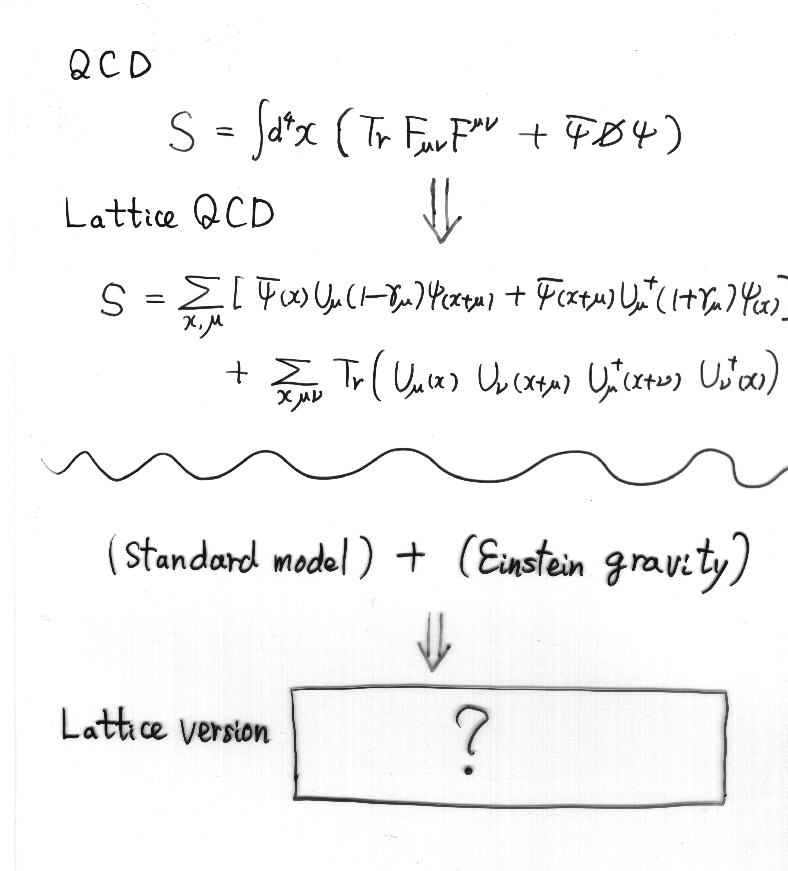 QCD
S = ∫d⁴x ( Tr F_μν F^μν + Ψ̄D̸Ψ )
Lattice QCD
S = Σ_{x,μ} [ Ψ̄(x) U_μ (1-γ_μ) Ψ(x+μ) + Ψ̄(x+μ) U_μ^† (1+γ_μ) Ψ(x) ]
+ Σ_{x,μν} Tr( U_μ(x) U_ν(x+μ) U_μ^†(x+ν) U_ν^†(x) )
(Standard model) + (Einstein gravity)
⇓
Lattice version ?